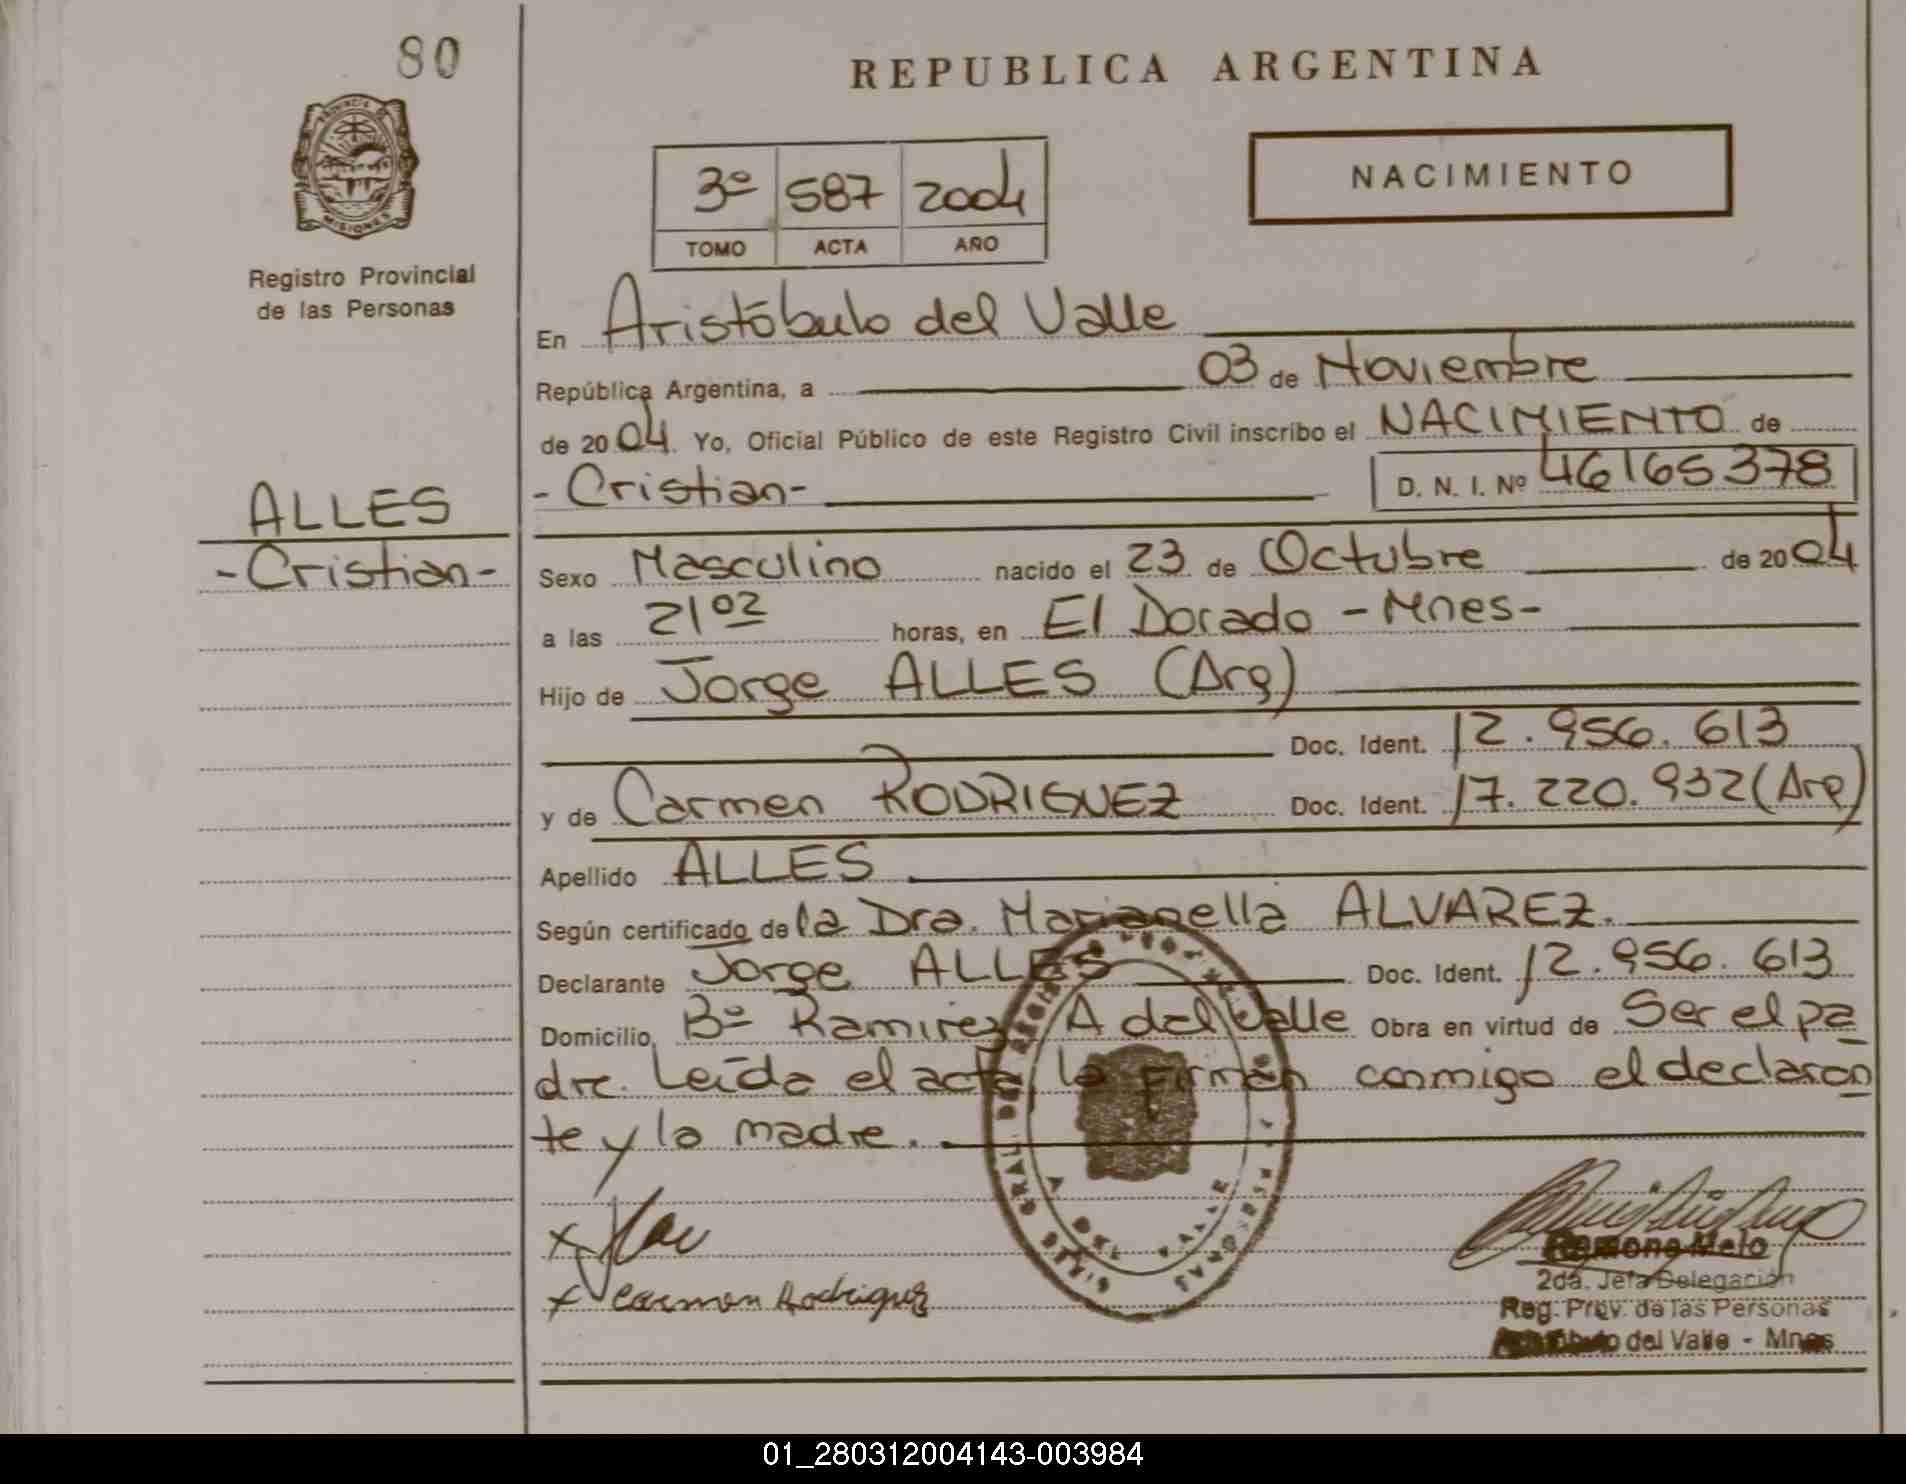 80
REPUBLICA ARGENTINA
PROVINCIA DE
MISIONES
Registro Provincial
de las Personas
NACIMIENTO
3º 587 2004
TOMO ACTA AÑO
En Aristóbulo del Valle
República Argentina, a 03 de Noviembre
de 2004. Yo, Oficial Público de este Registro Civil inscribo el NACIMIENTO de
- Cristian - D. N. I. Nº 46165378
ALLES
- Cristian -
Sexo Masculino nacido el 23 de Octubre de 2004
a las 21º² horas, en El Dorado - Mnes -
Hijo de Jorge ALLES (Arg)
Doc. Ident. 12.956.613
y de Carmen RODRIGUEZ Doc. Ident. 17.220.932 (Arg)
Apellido ALLES
Según certificado de la Dra. Marianella ALVAREZ.
Declarante Jorge ALLES Doc. Ident. 12.956.613
Domicilio Bº Ramirez A del Valle Obra en virtud de Ser el pa
dre. Leída el acta, la firman conmigo el declaran
te y la madre.
x
x Carmen Rodriguez
Ramona Melo
2da. Jefa Delegación
Reg. Prov. de las Personas
del Valle - Mnes
01_280312004143-003984